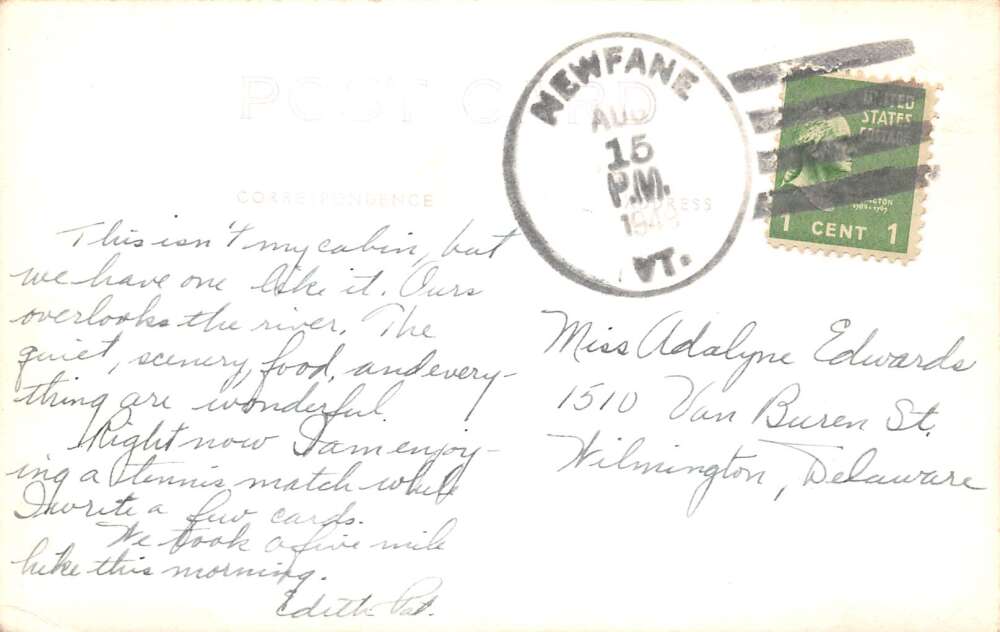 POST CARD
CORRESPONDENCE
NEWFANE
AUG
15
P.M.
VT.
UNITED
STATES
POSTAGE
1 CENT 1
This isn't my cabin, but
we have one like it. Ours
overlooks the river. The
quiet, scenery, food, and every-
thing are wonderful.
Right now I am enjoy-
ing a tennis match while
I write a few cards.
We took a five mile
hike this morning.
Edith Pat.
Miss Adalyne Edwards
1510 Van Buren St.
Wilmington, Delaware